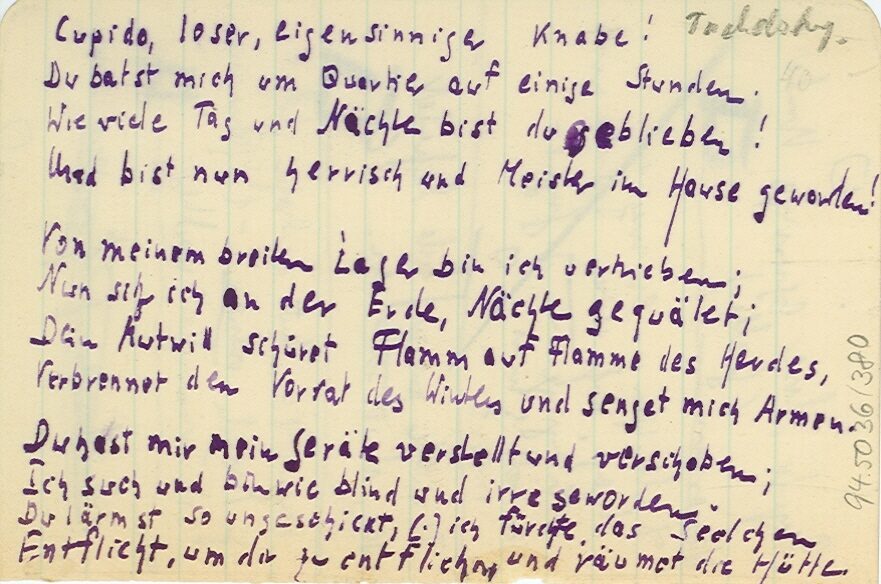 Cupido, loser, eigensinniger Knabe!
Du batst mich um Quartier auf einige Stunden.
Wie viele Tag und Nächte bist du geblieben!
Und bist nun herrisch und Meister im Hause geworden!
Von meinem breiten Lager bin ich vertrieben;
Nun sitz ich an der Erde, Nächte gequälet;
Dein Mutwill schüret Flamm auf Flamme des Herdes,
Verbrennet den Vorrat des Winters und senget mich Armen.
Du hast mir mein Geräte verstellt und verschoben;
Ich such und bin wie blind und irre geworden.
Du lärmst so ungeschickt, (.) ich fürchte, das Seelchen
Entflieht, um dir zu entfliehn, und räumet die Hütte.
94.5036/380